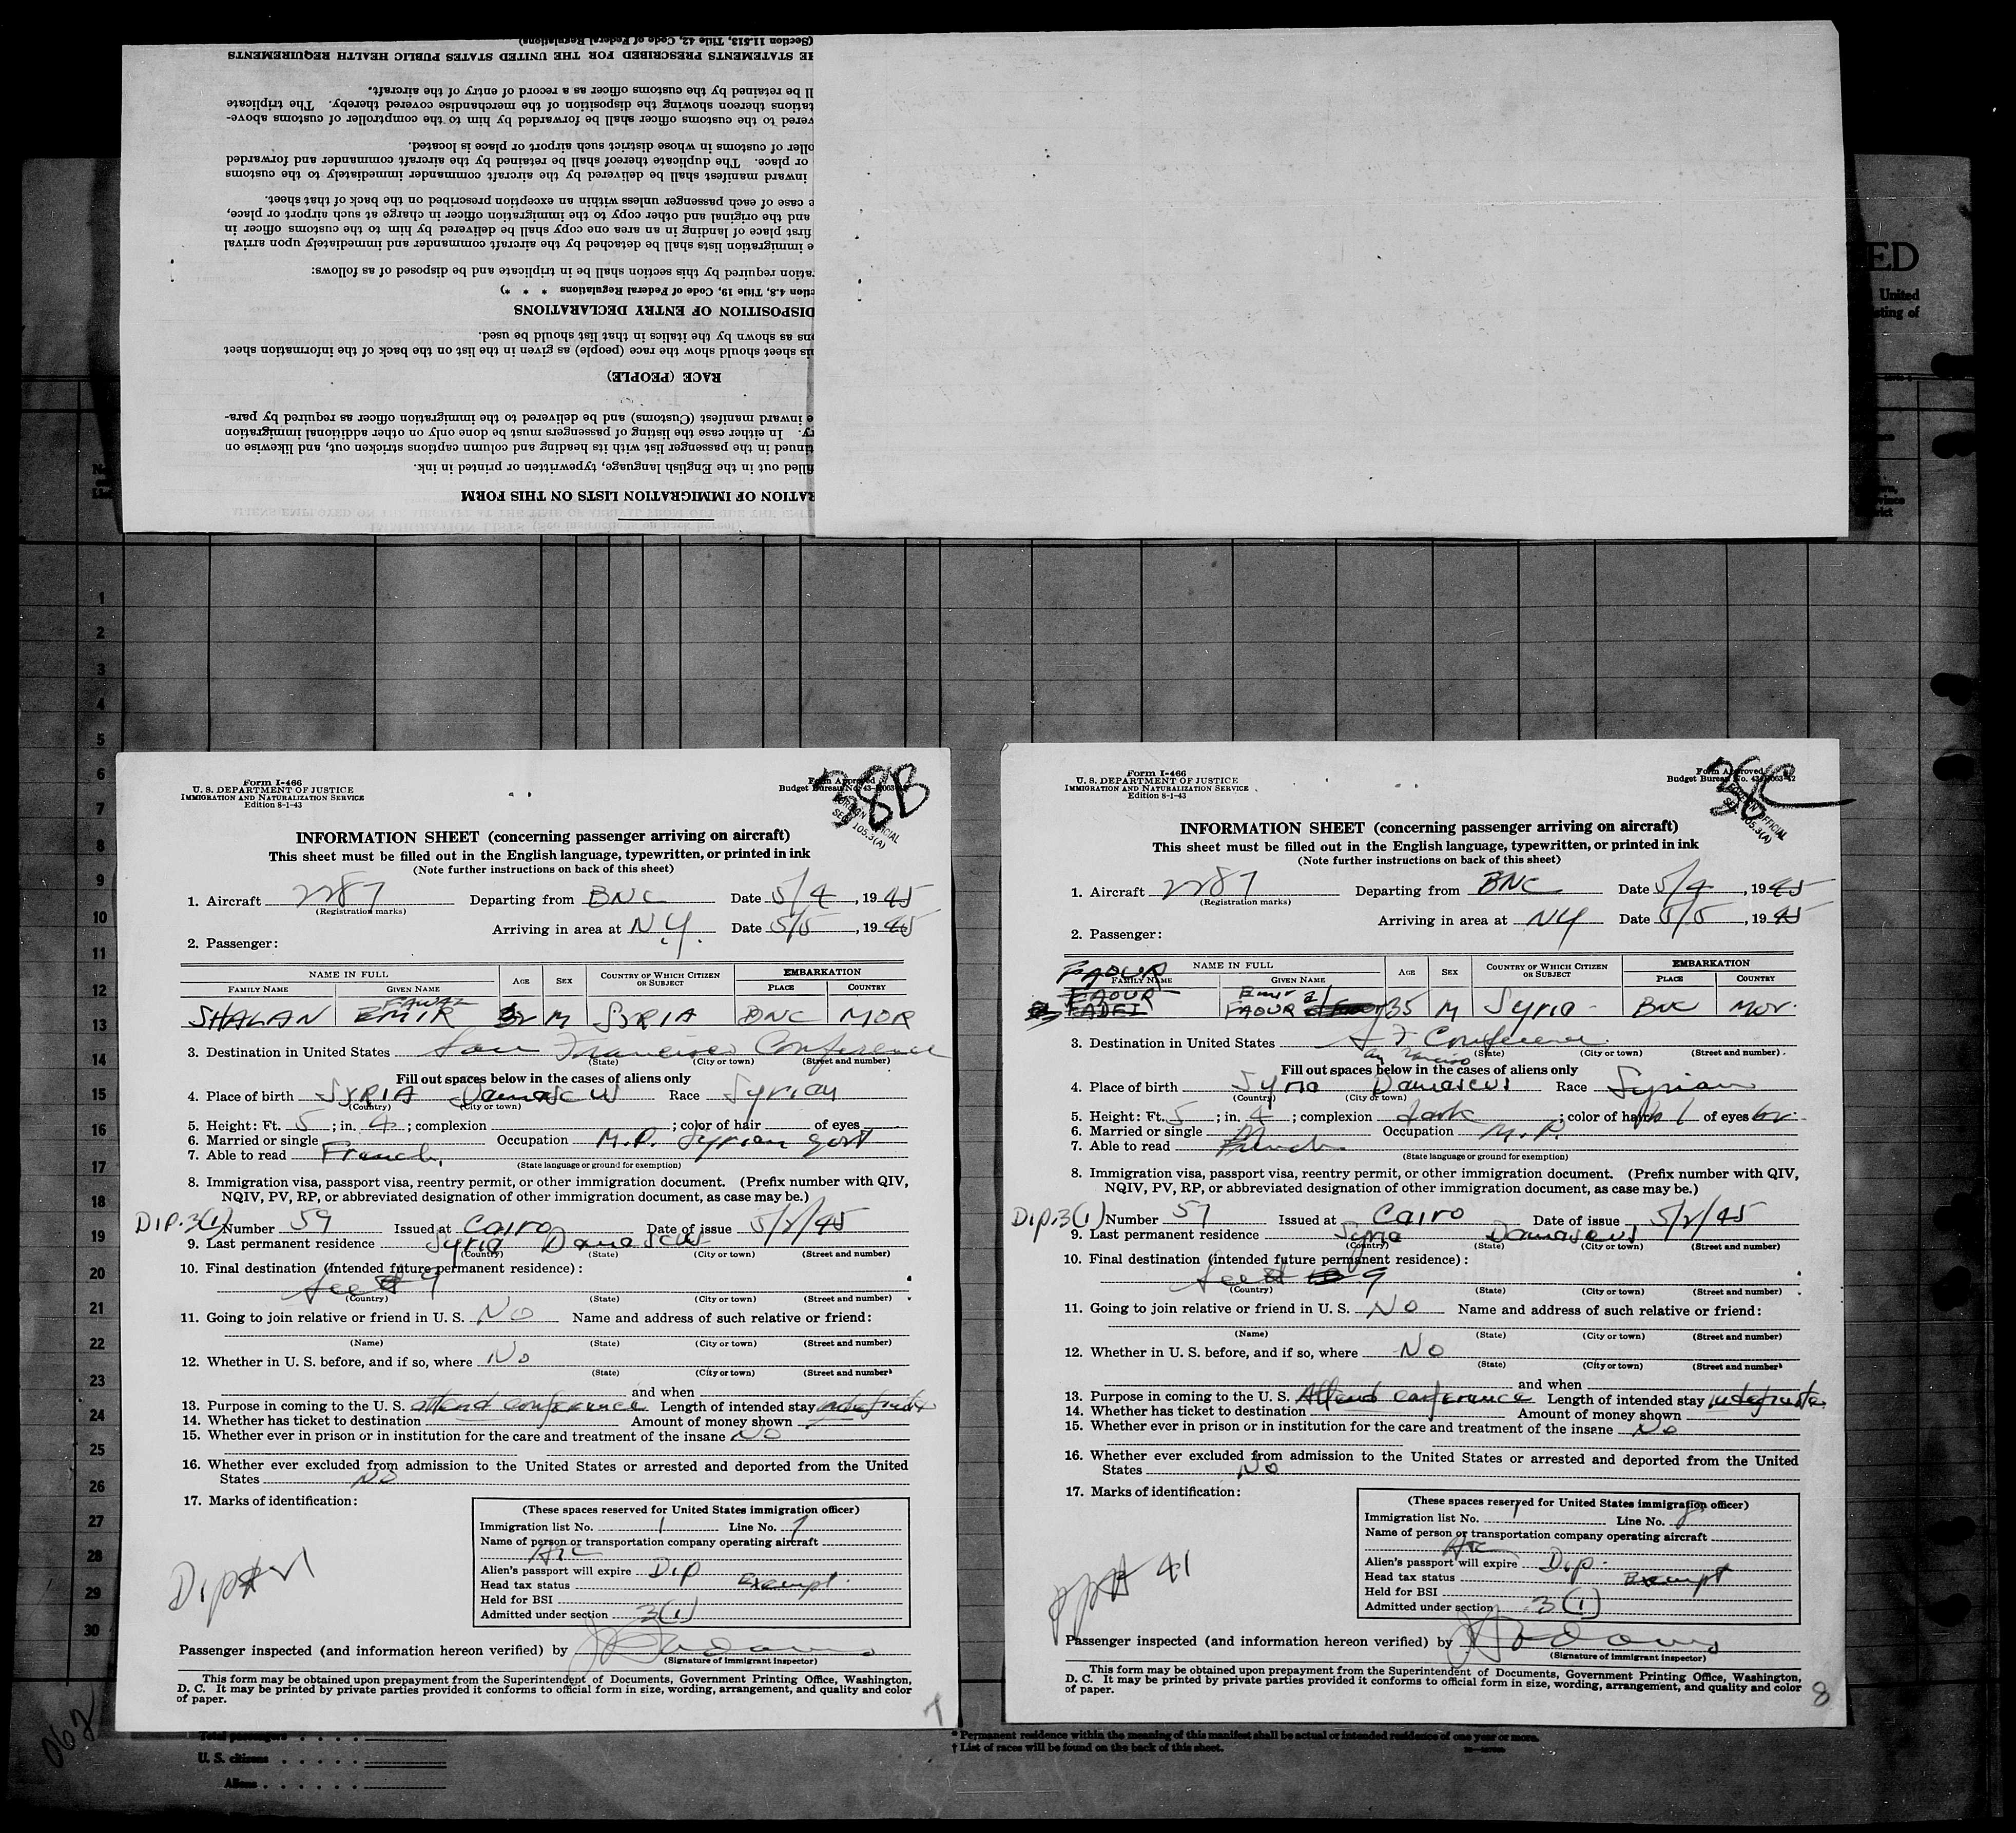 (Section 11.513, Title 42, Code of Federal Regulations)
HE STATEMENTS PRESCRIBED FOR THE UNITED STATES PUBLIC HEALTH REQUIREMENTS
ll be retained by the customs officer as a record of entry of the aircraft.
tations thereon showing the disposition of the merchandise covered thereby. The triplicate
vered to the customs officer shall be forwarded by him to the comptroller of customs above-
oller of customs in whose district such airport or place is located.
or place. The duplicate thereof shall be retained by the aircraft commander and forwarded
inward manifest shall be delivered by the aircraft commander immediately to the customs
e case of each passenger unless within an exception prescribed on the back of that sheet.
and the original and other copy to the immigration officer in charge at such airport or place,
first place of landing in an area one copy shall be delivered by him to the customs officer in
e immigration lists shall be detached by the aircraft commander and immediately upon arrival
ration required by this section shall be in triplicate and be disposed of as follows:
ction 4.8, Title 19, Code of Federal Regulations * * *)
DISPOSITION OF ENTRY DECLARATIONS
ons as shown by the italics in that list should be used.
is sheet should show the race (people) as given in the list on the back of the information sheet
RACE (PEOPLE)
e inward manifest (Customs) and be delivered to the immigration officer as required by para-
ry. In either case the listing of passengers must be done only on other additional immigration
tinued in the passenger list with its heading and column captions stricken out, and likewise on
filled out in the English language, typewritten or printed in ink.
RATION OF IMMIGRATION LISTS ON THIS FORM
ED
United
sting of
1
2
3
4
5
6
7
8
9
10
11
12
13
14
15
16
17
18
19
20
21
22
23
24
25
26
27
28
29
30
Form I-466
U. S. DEPARTMENT OF JUSTICE
IMMIGRATION AND NATURALIZATION SERVICE
Edition 8-1-43
Form Approved
Budget Bureau No. 43-R063
38B
SEC 105.3(A)
INFORMATION SHEET (concerning passenger arriving on aircraft)
This sheet must be filled out in the English language, typewritten, or printed in ink
(Note further instructions on back of this sheet)
1. Aircraft 2287 Departing from BNC Date 5/4, 1945
(Registration marks)
Arriving in area at N.Y. Date 5/5, 1945
2. Passenger:
NAME IN FULL AGE SEX COUNTRY OF WHICH CITIZEN OR SUBJECT EMBARKATION
FAMILY NAME GIVEN NAME PLACE COUNTRY
FAWAZ
SHALAN EMIR 32 M SYRIA BNC MOR
3. Destination in United States San Francisco Conference
(State) (City or town) (Street and number)
Fill out spaces below in the cases of aliens only
4. Place of birth SYRIA Damascus Race Syrian
(Country) (City or town)
5. Height: Ft. 5; in. 4; complexion ; color of hair of eyes
6. Married or single Occupation M.P. Syrian govt
7. Able to read French,
(State language or ground for exemption)
8. Immigration visa, passport visa, reentry permit, or other immigration document. (Prefix number with QIV,
NQIV, PV, RP, or abbreviated designation of other immigration document, as case may be.)
DIP.3(1) Number 59 Issued at Cairo Date of issue 5/2/45
9. Last permanent residence Syria Damascus
(Country) (State) (City or town) (Street and number)
10. Final destination (intended future permanent residence):
See # 9
(Country) (State) (City or town) (Street and number)
11. Going to join relative or friend in U. S. No Name and address of such relative or friend:
(Name) (State) (City or town) (Street and number)
12. Whether in U. S. before, and if so, where No
(State) (City or town) (Street and number)
and when
13. Purpose in coming to the U. S. attend conference Length of intended stay indefinite
14. Whether has ticket to destination Amount of money shown
15. Whether ever in prison or in institution for the care and treatment of the insane NO
16. Whether ever excluded from admission to the United States or arrested and deported from the United
States NO
17. Marks of identification:
(These spaces reserved for United States immigration officer)
Immigration list No. 1 Line No. 7
Name of person or transportation company operating aircraft
ATC
Alien's passport will expire Dip
Head tax status Exempt.
Held for BSI
Admitted under section 3(1)
Passenger inspected (and information hereon verified) by
(Signature of immigrant inspector)
This form may be obtained upon prepayment from the Superintendent of Documents, Government Printing Office, Washington,
D. C. It may be printed by private parties provided it conforms to official form in size, wording, arrangement, and quality and color
of paper.
7
Form I-466
U. S. DEPARTMENT OF JUSTICE
IMMIGRATION AND NATURALIZATION SERVICE
Edition 8-1-43
Form Approved
Budget Bureau No. 43-R063-42
38C
105.3(A)
INFORMATION SHEET (concerning passenger arriving on aircraft)
This sheet must be filled out in the English language, typewritten, or printed in ink
(Note further instructions on back of this sheet)
1. Aircraft 2287 Departing from BNC Date 5/4, 1945
(Registration marks)
Arriving in area at NY Date 5/5, 1945
2. Passenger:
NAME IN FULL AGE SEX COUNTRY OF WHICH CITIZEN OR SUBJECT EMBARKATION
FAOUR
FAMILY NAME GIVEN NAME PLACE COUNTRY
FAOUR Emir al
FADEI FAOUR 35 M Syria BNC Mor.
3. Destination in United States S F Conference
an rancisco
(State) (City or town) (Street and number)
Fill out spaces below in the cases of aliens only
4. Place of birth Syria Damascus Race Syrian
(Country) (City or town)
5. Height: Ft. 5; in. 4; complexion dark; color of hair bl of eyes br.
6. Married or single M Occupation M.P.
7. Able to read French
(State language or ground for exemption)
8. Immigration visa, passport visa, reentry permit, or other immigration document. (Prefix number with QIV,
NQIV, PV, RP, or abbreviated designation of other immigration document, as case may be.)
Dip.3(1) Number 57 Issued at Cairo Date of issue 5/2/45
9. Last permanent residence Syria Damascus
(Country) (State) (City or town) (Street and number)
10. Final destination (intended future permanent residence):
See # 9
(Country) (State) (City or town) (Street and number)
11. Going to join relative or friend in U. S. No Name and address of such relative or friend:
(Name) (State) (City or town) (Street and number)
12. Whether in U. S. before, and if so, where No
(State) (City or town) (Street and number)
and when
13. Purpose in coming to the U. S. Attend conference Length of intended stay indefinite
14. Whether has ticket to destination Amount of money shown
15. Whether ever in prison or in institution for the care and treatment of the insane No
16. Whether ever excluded from admission to the United States or arrested and deported from the United
States No
17. Marks of identification:
(These spaces reserved for United States immigration officer)
Immigration list No. 1 Line No. 8
Name of person or transportation company operating aircraft
ATC
Alien's passport will expire Dip.
Head tax status Exempt
Held for BSI
Admitted under section 3(1)
ppt# 41
Passenger inspected (and information hereon verified) by
(Signature of immigrant inspector)
This form may be obtained upon prepayment from the Superintendent of Documents, Government Printing Office, Washington,
D. C. It may be printed by private parties provided it conforms to official form in size, wording, arrangement, and quality and color
of paper.
8
062
Total passengers
U. S. citizens
Aliens
* Permanent residence within the meaning of this manifest shall be actual or intended residence of one year or more.
† List of races will be found on the back of this sheet.